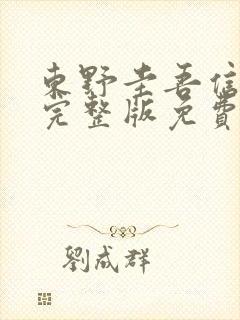 東野圭吾信
完整版免費
劉成群